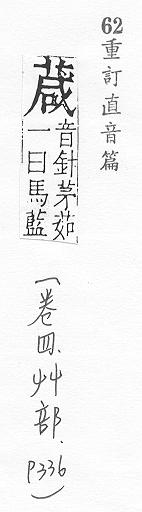 62重訂直音篇
葴
音針茅茹
一曰馬藍
(卷四、艸部、P336)